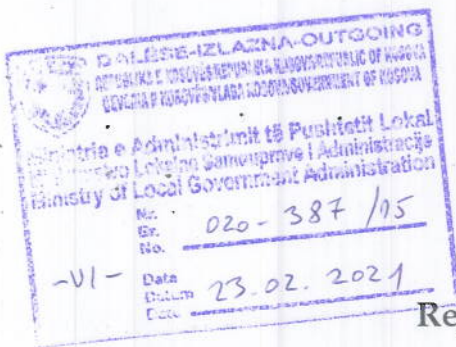 DALËSE-IZLAZNA-OUTGOING
REPUBLIKA E KOSOVËS/REPUBLIKA KOSOVO/REPUBLIC OF KOSOVA
QEVERIA E KOSOVËS/VLADA KOSOVA/GOVERNMENT OF KOSOVA
Ministria e Administrimit të Pushtetit Lokal
Lokalne Samouprave i Administracije
Ministry of Local Government Administration
Nr.
Br.
No. 020-387/15
-VI-
Data
Datum
Date 23.02.2021
Re